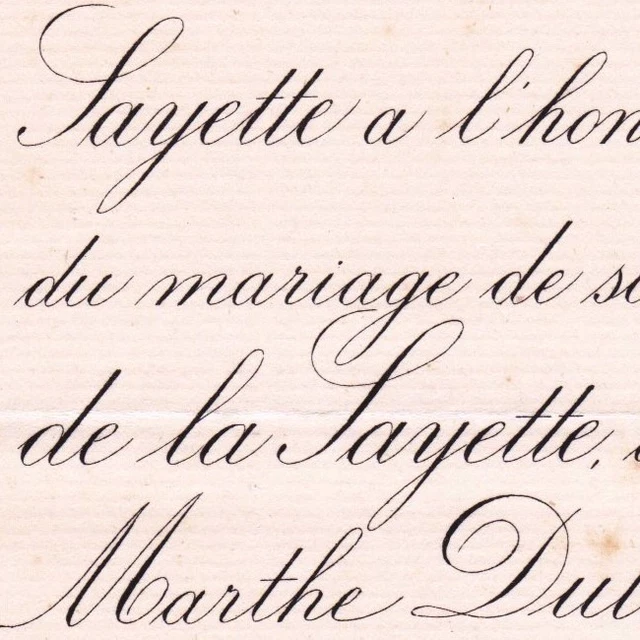 Sayette a l'hon
du mariage de so
de la Sayette,
Marthe Dul